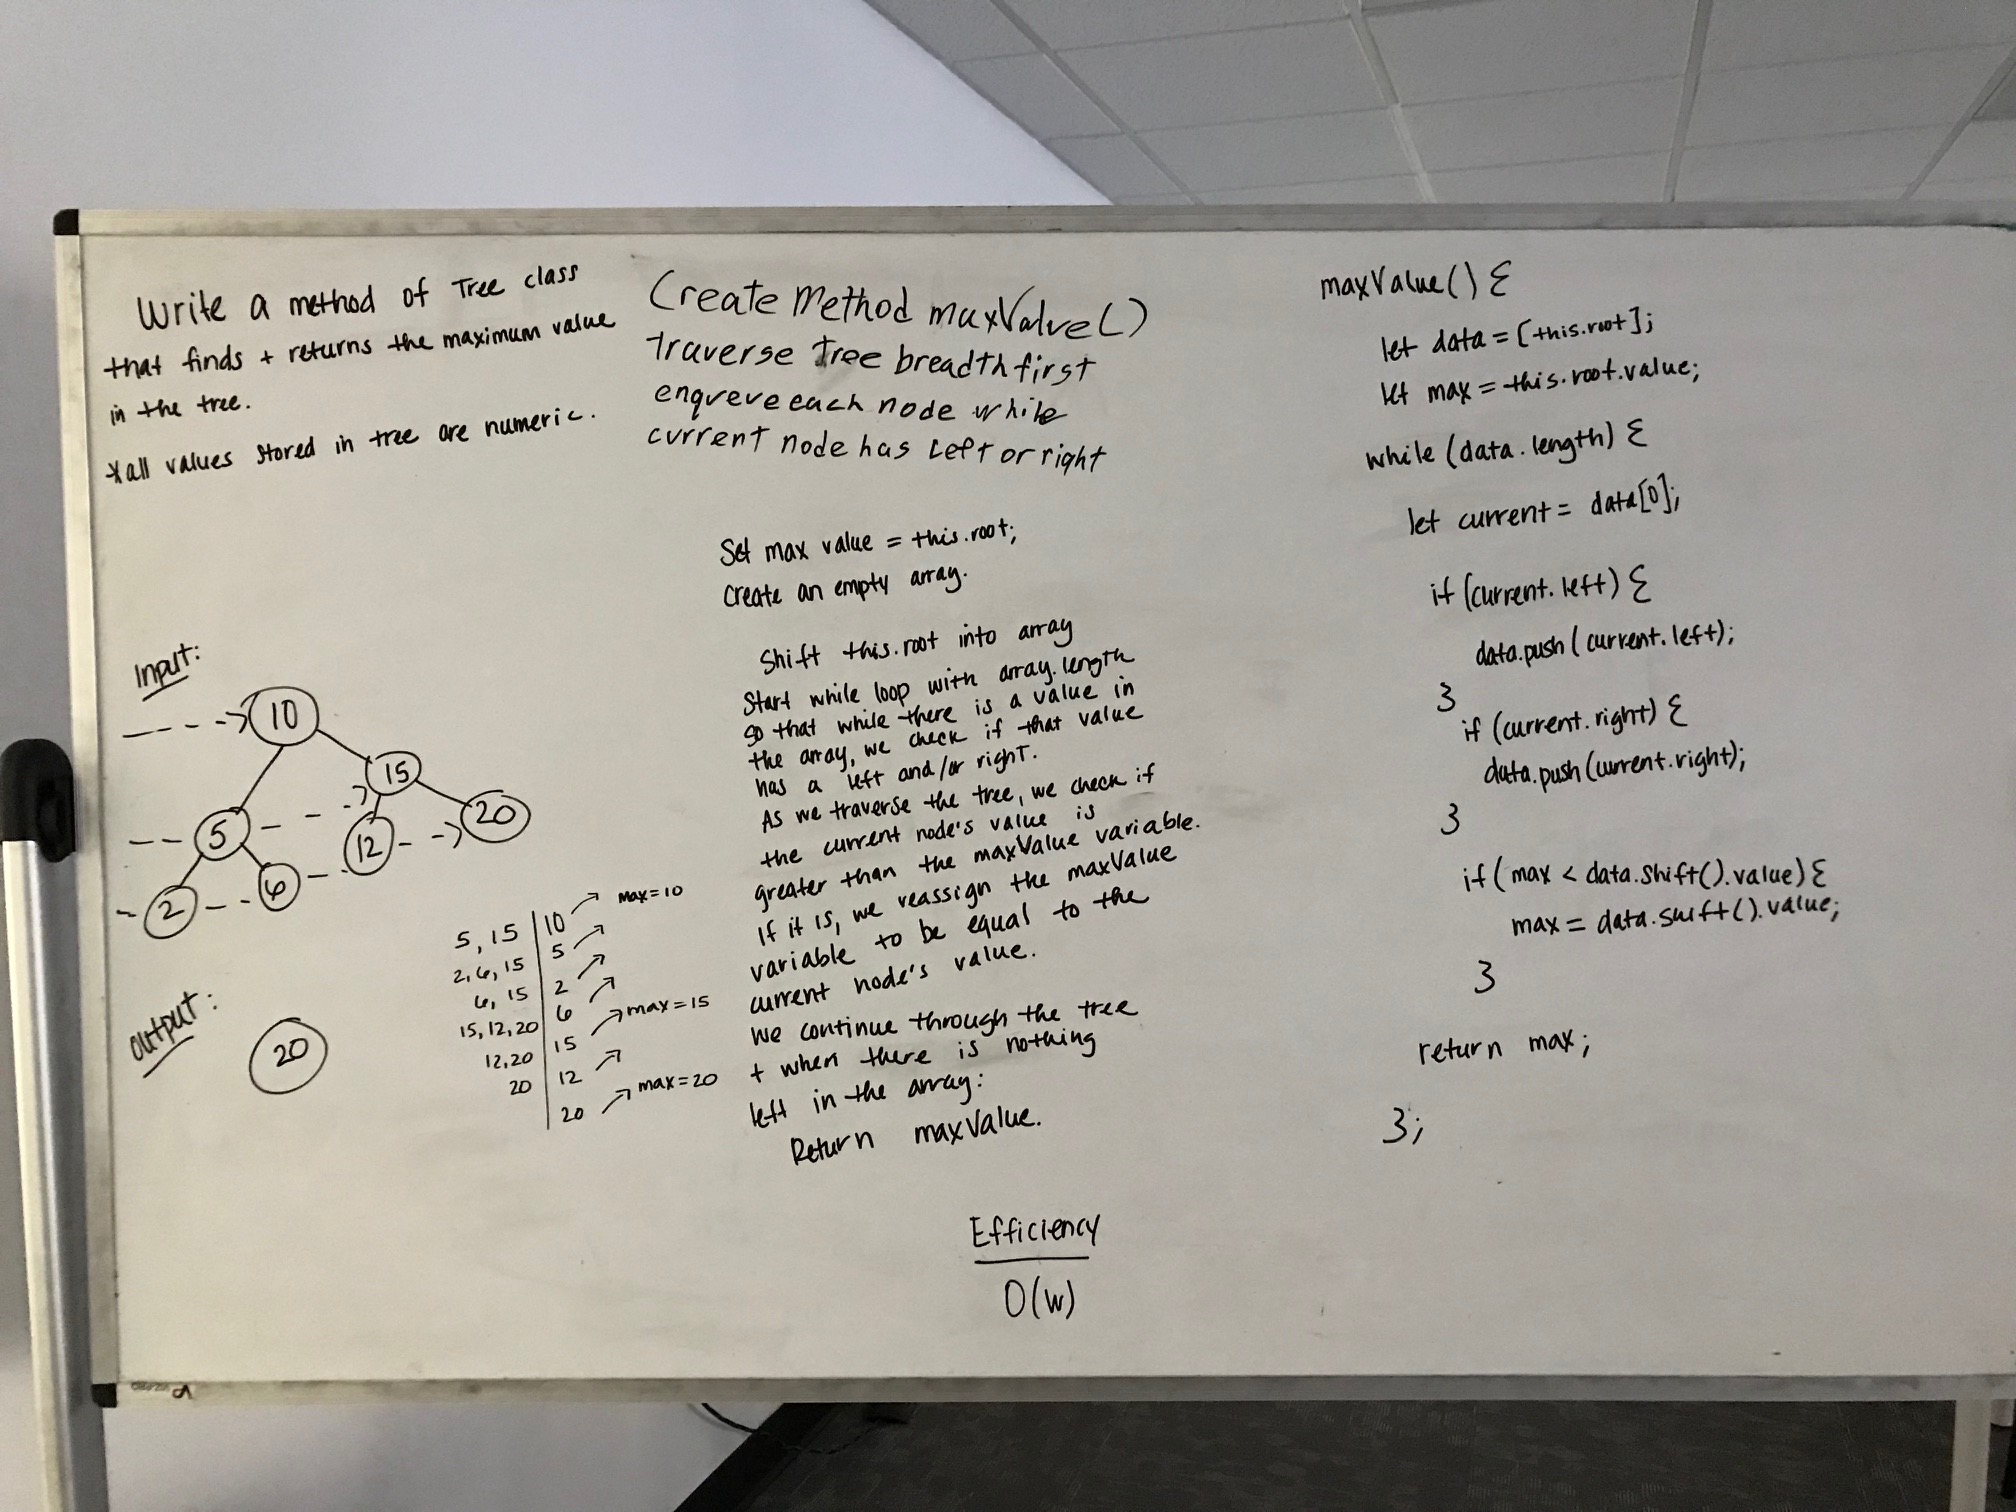 Write a method of Tree class
that finds + returns the maximum value
in the tree.
*all values stored in tree are numeric.
Input:
10
15
5
12
20
2
6
Output:
20
5, 15 | 10 max=10
2, 6, 15 | 5
6, 15 | 2
15, 12, 20 | 6
12, 20 | 15 max=15
20 | 12
20 max=20
Create Method maxValve()
traverse Tree breadth first
enqueve each node while
current node has Left or right
Set max value = this.root;
Create an empty array.
Shift this.root into array
Start while loop with array.length
so that while there is a value in
the array, we check if that value
has a left and/or right.
As we traverse the tree, we check if
the current node's value is
greater than the maxValue variable.
If it is, we reassign the maxValue
variable to be equal to the
current node's value.
We continue through the tree
+ when there is nothing
left in the array:
Return maxValue.
Efficiency
O(w)
maxValue() {
let data = [this.root];
let max = this.root.value;
while (data.length) {
let current = data[0];
if (current.left) {
data.push(current.left);
}
if (current.right) {
data.push(current.right);
}
if (max < data.shift().value) {
max = data.shift().value;
}
return max;
};